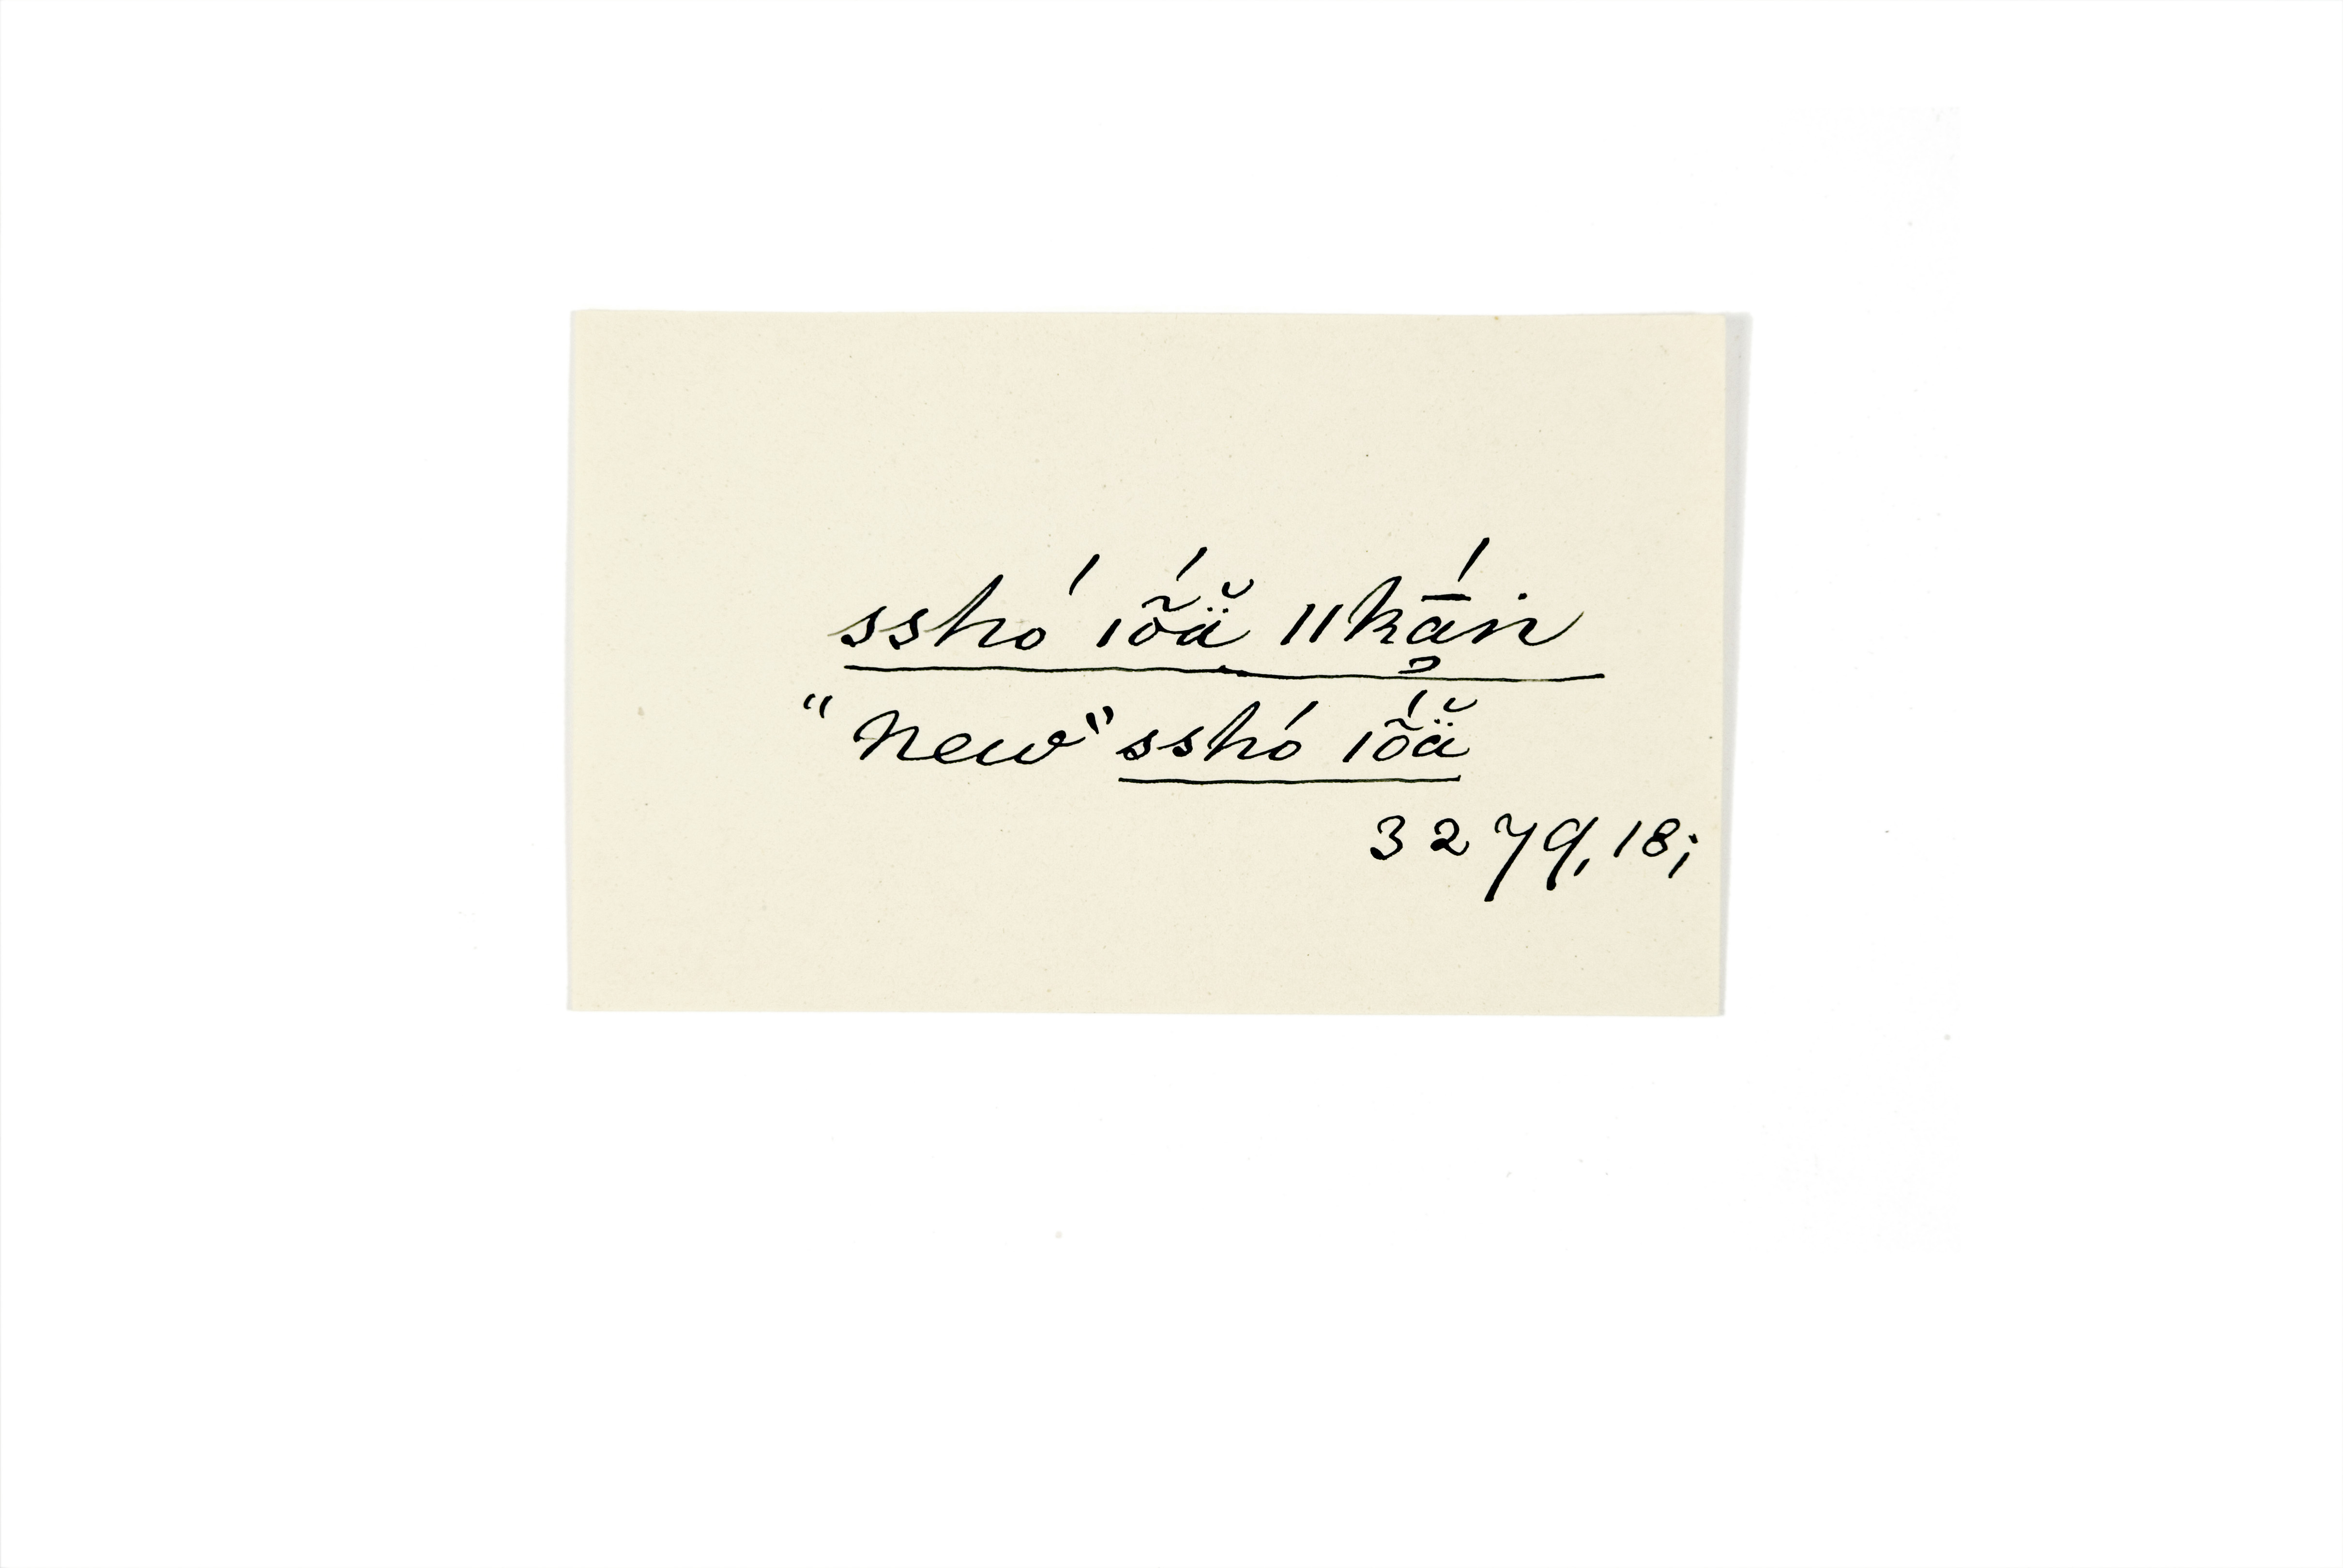 sshó ıṍä̆ ııkā̤́n
"new" sshó ıṍä̆
3279,18;